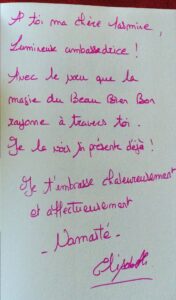 A toi ma chère Jasmine,
Lumineuse ambassadrice !
Avec le vœu que la
magie du Beau Bien Bon
rayonne à travers toi..
Je la vois si présente déjà !
Je t'embrasse chaleureusement
et affectueusement
- Namasté -
Elisabeth